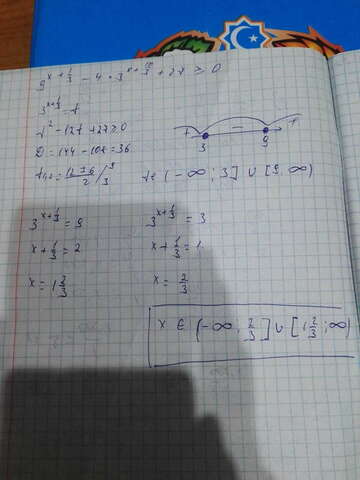 9^{x+\frac{1}{3}} - 4 \cdot 3^{x+\frac{10}{3}} + 27 ≥ 0
3^{x+\frac{1}{3}} = t
t² - 12t + 27 ≥ 0
D = 144 - 108 = 36
t₁,₂ = \frac{12±6}{2} / 9 3
+ - +
3 9
t ∈ (-∞; 3] ∪ [9; ∞)
3^{x+\frac{1}{3}} = 9
3^{x+\frac{1}{3}} = 3
x + \frac{1}{3} = 2
x + \frac{1}{3} = 1
x = 1\frac{2}{3}
x = \frac{2}{3}
x ∈ (-∞; \frac{2}{3}] ∪ [1\frac{2}{3}; ∞)